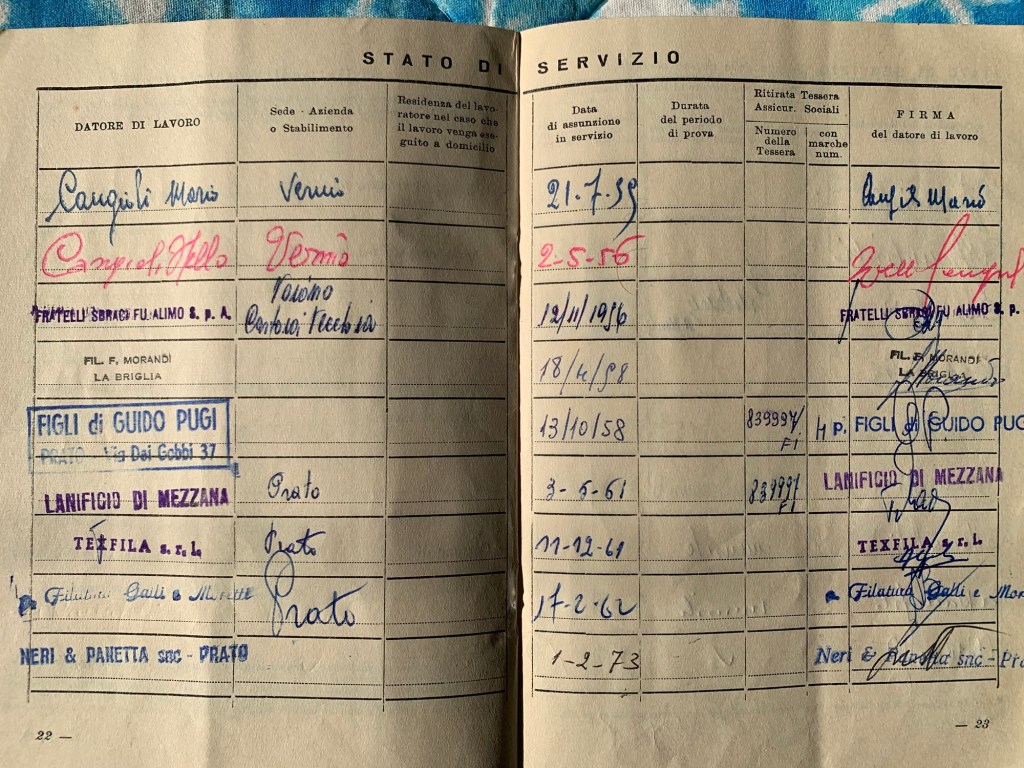 STATO DI SERVIZIO
DATORE DI LAVORO
Sede - Azienda
o Stabilimento
Residenza del lavo-
ratore nel caso che
il lavoro venga ese-
guito a domicilio
Data
di assunzione
in servizio
Durata
del periodo
di prova
Ritirata Tessera
Assicur. Sociali
Numero
della
Tessera
con
marche
num.
FIRMA
del datore di lavoro
Mario Vernio 21-7-55 Mario
Vernio 2-5-56
FRATELLI SBRACI FU ALIMO S. p. A. 12/11/1956 FRATELLI SBRACI FU ALIMO S. p.
FIL. F. MORANDI
LA BRIGLIA
18/4/58
FIL. F. MORANDI
LA BRIGLIA
FIGLI di GUIDO PUGI
PRATO Via Dei Gobbi 37
13/10/58 839997/ FI 4 p. FIGLI di GUIDO PUG
LANIFICIO DI MEZZANA Prato 3-5-61 839997 FI LANIFICIO DI MEZZANA
TEXFILA s.r.l. Prato 11-12-61 TEXFILA s.r.l.
Filatura Galli e Prato 17-2-62 Filatura Galli e Mor
NERI & PANETTA snc - PRATO 1-2-73 Neri & Panetta snc - Pra
22 —
— 23